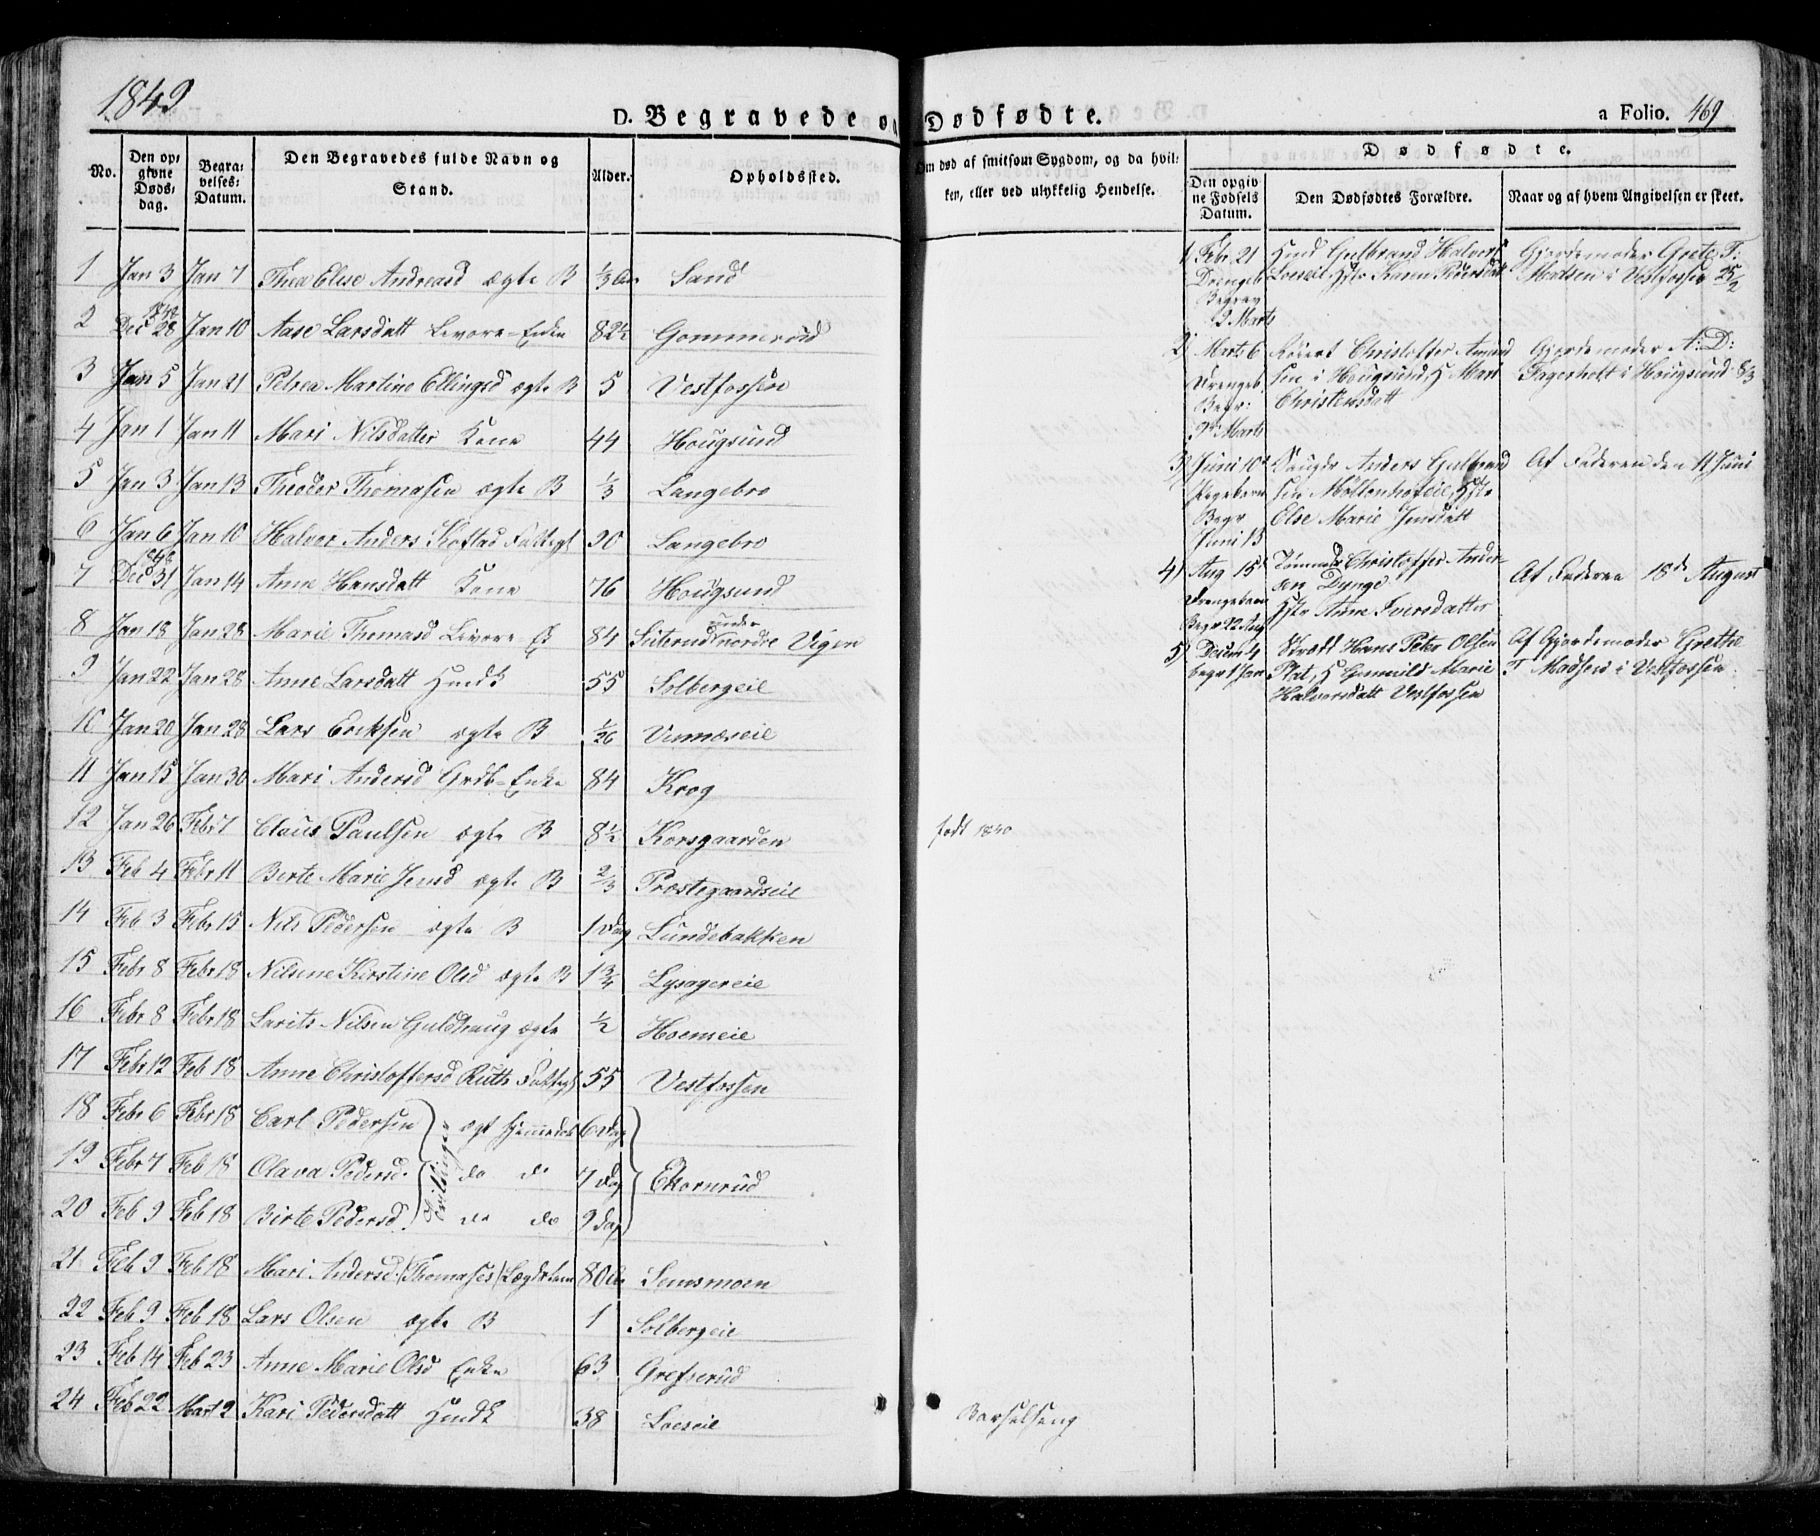 1849
D. Begravede og Dødfødte.
a Folio. 469
No.
Den opgivne Døds-dag.
Begravelses-Datum.
Den Begravedes fulde Navn og Stand.
Alder.
Opholdssted.
Om død af smitsom Sygdom, og da hvilken, eller ved ulykkelig Hendelse.
Dødfødte.
Den opgivne Fødsels Datum.
Den Dødfødtes Forældre.
Naar og af hvem Angivelsen er skeet.
1 Jan 3 Jan 7 Thea Elise Andreasd ægte B 1/3 Sand
2 1848 Dec 28 Jan 10 Aase Larsdatt Levore-Enke 82½ Gommerud
3 Jan 5 Jan 21 Petrea Martine Ellingsd ægte B 5 Vestfossen
4 Jan 1 Jan 11 Mari Nilsdatter Kone 44 Hougsund
5 Jan 3 Jan 13 Theodor Thomasen ægte B 1/3 Langebro
6 Jan 6 Jan 10 Halvor Anders Koftad Fattigl 90 Langebro
7 1848 Dec 31 Jan 14 Anne Hansdatt Kone 76 Hougsund
8 Jan 18 Jan 28 Marie Thomasd Levore-E 84 Siterud under nordre Vigen
9 Jan 22 Jan 28 Anne Larsdatt Huusk 55 Solbergeie
10 Jan 20 Jan 28 Lars Eriksen ægte B 1/26 Vinnæseie
11 Jan 15 Jan 30 Mari Andersd Grdb-Enke 84 Krog
12 Jan 26 Feb 7 Claus Paulsen ægte B 8½ Korsgaarden født 1840
13 Feb 4 Febr 11 Berte Marie Jensd ægte B 2/3 Præstegaardseie
14 Feb 3 Febr 15 Nils Pedersen ægte B 1 Dag Lundebakken
15 Febr 8 Febr 18 Niline Kirstine Olsd ægte B 1 3/4 Lysagereie
16 Febr 8 Febr 18 Laritz Nilsen Guldhaug ægte ½ Hoemseie
17 Febr 12 Feb 18 Anne Christoffersd Ruth Fattigl 55 Vestfossen
18 Febr 6 Febr 18 Carl Pedersen Trillinger ægt hjemmedøbt 6 Dag
19 Febr 7 Feb 18 Olava Pedersd. do do 7 Dag Ekornrud
20 Feb 9 Feb 18 Birte Pedersd do do 9 Dag
21 Feb 9 Feb 18 Mari Andersd (Thomases) Lægdslem 80 Semsmoen
22 Feb 9 Feb 18 Lars Olsen ægte B 1 Solbergeie
23 Feb 14 Feb 23 Anne Marie Olsd Enke 63 Grefsrud
24 Feb 22 Mart 2 Kari Pedersdatt Huusk 38 Loeseie Barselseng
1 Febr. 21 Drengeb Begrav 2 Marts
Huusm Gulbrand Halvors Loeseie Hstr Karen Knudsdatt
Gjordemoder Grete T. Madsen i Vestfossen 25/2
2 Marts 6 Drengeb Begr: 9de Marts
Røiert Christoffer Amundsen i Hougsund H Mari Christensdatt
Gjordemoder A: D: Fagerholt i Hougsund 8/3
3 Juni 10de Pigebarn Begr Juni 13
Saugdr Anders Gulbrandsen Møllenhofeie, Hstr Else Marie Jensdatt
Af Faderen den 11 Juni
4 Aug 15de Drengebarn Begr 22 Aug
Tømmerm Christoffer Andersen Dynge Hstr Anne Iversdatter
Af Faderen 18de August
5 Decem 4 begr 1 Jan
Skrædd Hans Peter Olsen Plat, H Gunnild Marie Halvorsdatt Vestfossen
Af Gjordemoder Grethe T Madsen i Vestfossen